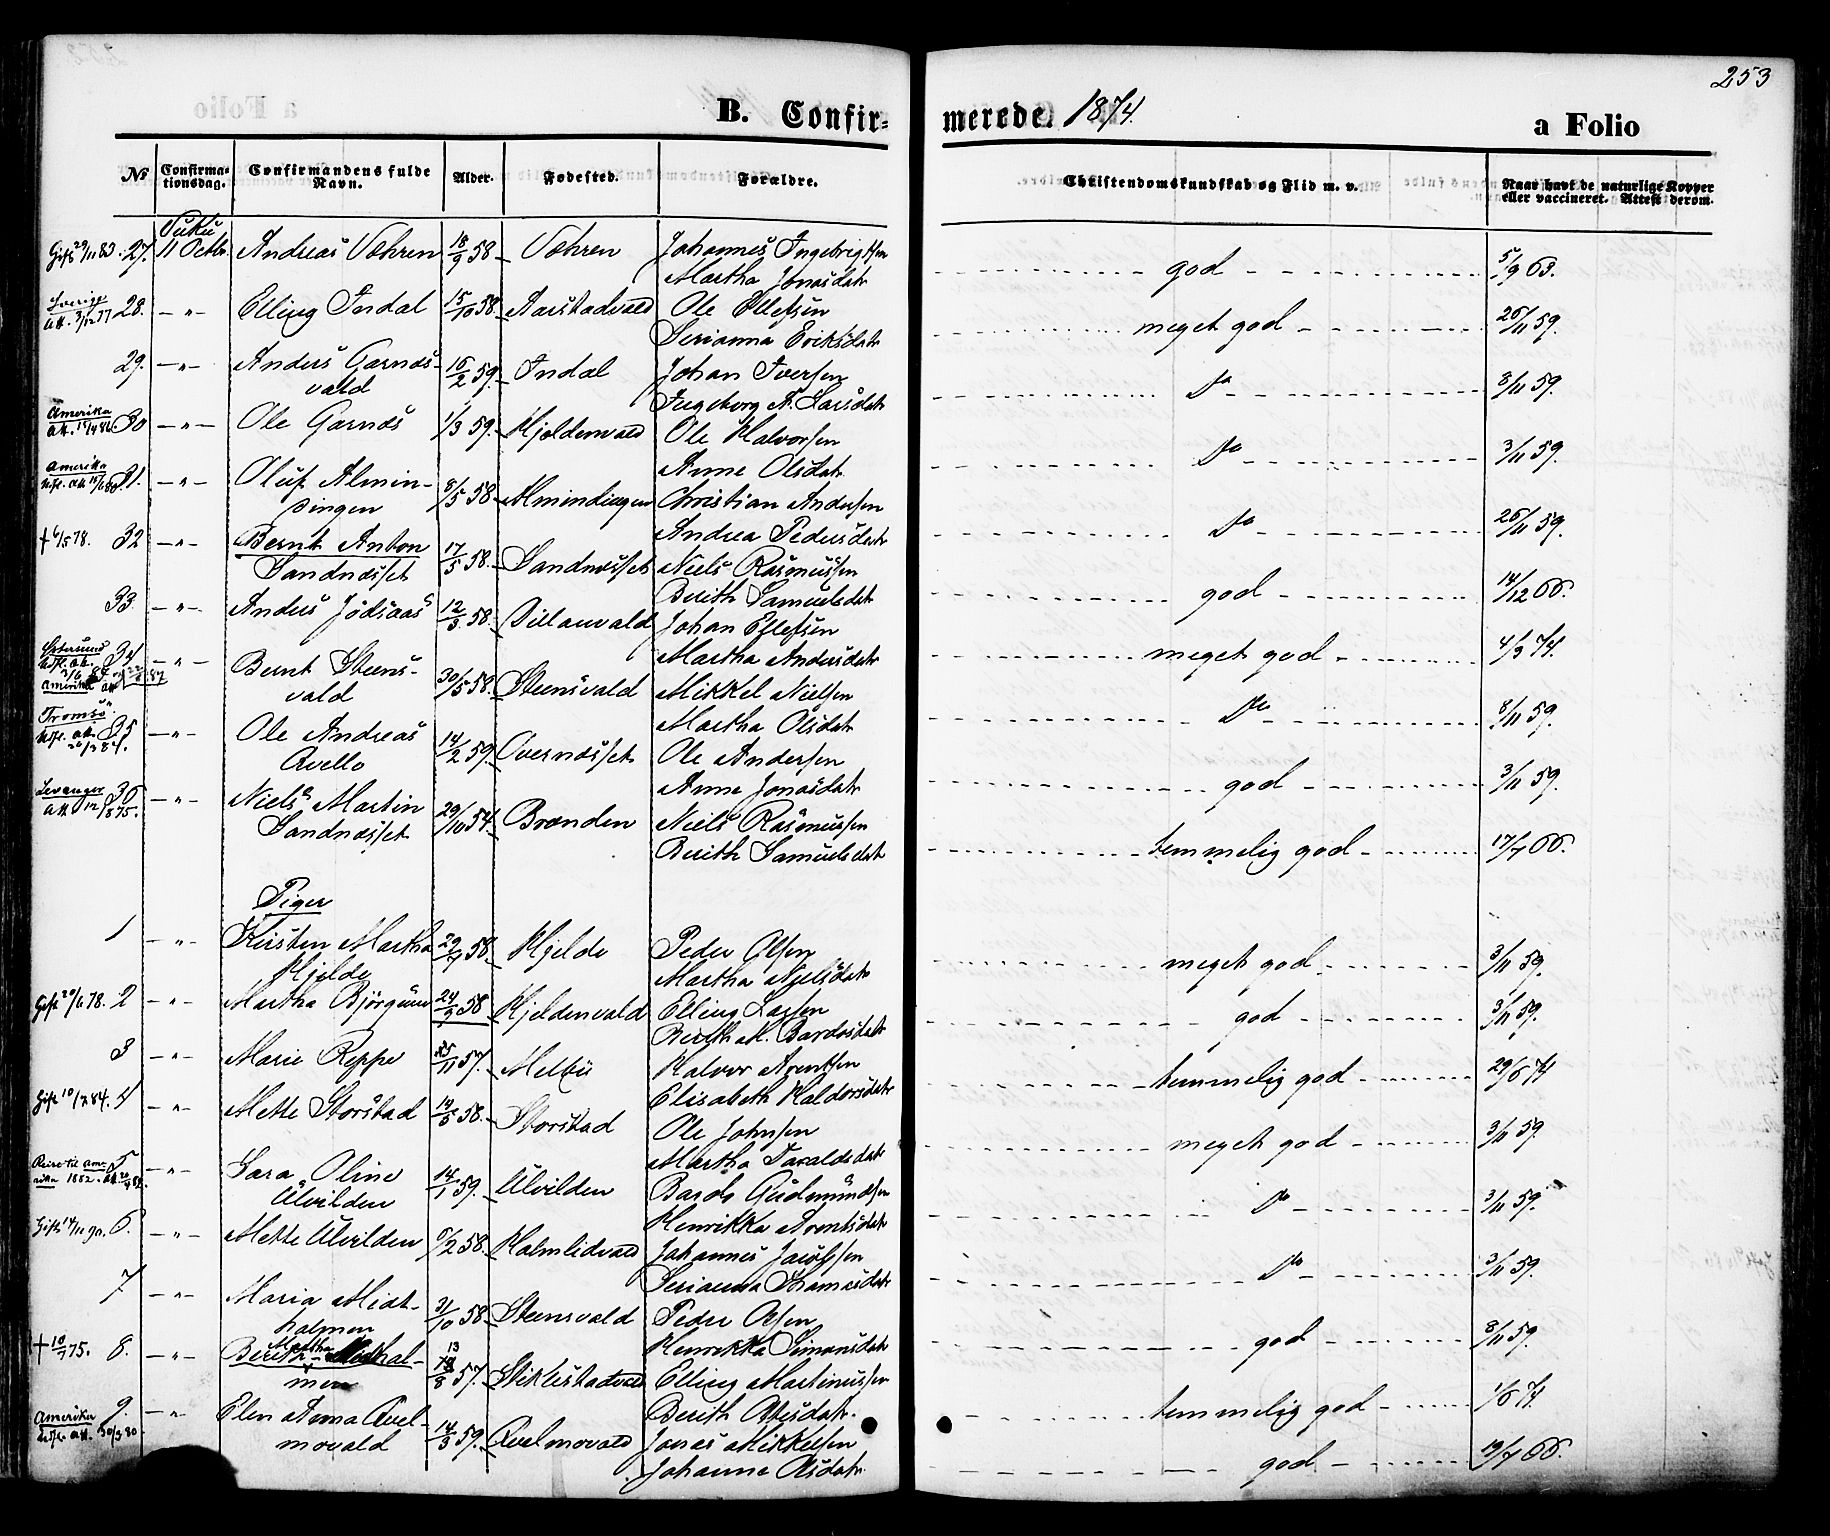 253
B. Confirmerede. 1874.
a Folio
No
Confirmationsdag.
Confirmandens fulde Navn.
Alder.
Fødested.
Forældre.
Christendomskundskab og Flid m. v.
Naar havt de naturlige Kopper eller vaccineret. Attest derom.
Vuku
Gift 29/11 83. 27. 11 Octbr. Andreas Væhren 18/9 58 Væhren Johannes Ingebrigtsen god 5/9 63.
Martha Jonasdatr
Sverige att. 3/12 77 28. — " — Elling Indal 15/10 58. Aarstadvald Ole Ellefsen meget god 26/11 59.
Serianna Eriksdatr
29. — " — Anders Garnæs- 16/2 59. Indal Johan Iversen Do 8/11 59.
vald Ingeborg A. Larsdatr
Amerika att. 30 — " — Ole Garnæs 1/3 59. Hjeldenvald Ole Halvorsen Do 3/11 59.
Anne Olsdatr
Amerika 31. — " — Oluf Almin- 8/5 58 Almindingen Christian Andersen Do 26/11 59.
dingen Andrea Pedersdatr
† 6/5 78. 32 — " — Bernt Anton 17/5 58. Sandnæsset Niels Rasmussen god 14/12 66.
Sandnæsset Berith Samuelsdatr
33. — " — Anders Jødsaas 12/3 58. Dillanvald Johan Ellefsen meget god 4/3 74.
Martha Andersdatr
Østersund Amerika 34 — " — Bernt Steens- 30/5 58. Steensvald Mikkel Nielsen Do 8/11 59.
vald Martha Olsdatr
Tromsø 35 — " — Ole Andreas 14/2 59. Overnæsset Ole Andersen god 3/11 59.
Avello Anne Jonasdatr
Levanger att. 12/8 75. 36 — " — Niels Martin 29/10 54. Branden Niels Rasmussen temmelig god 17/7 66.
Sandnæsset Berith Samuelsdatr
Piger
1 — " — Kirsten Martha 58. Hjelde Peder Olsen meget god 3/11 59.
Hjelde Martha Nielsdatr
Gift 20/6 78. 2 — " — Martha Bjørgann 24/9 58 Hjeldenvald Elling Larsen god 3/11 59.
Berith M. Bardosdatr
3 — " — Marie Reppe 25/11 57. Melbii Halvor Arentsen temmelig god 29/6 74
Elisabeth Haldorsdatr
Gift 10/ 84. 4 — " — Mette Storstad 14/5 58. Storstad Ole Johnsen meget god 3/11 59.
Martha Taraldsdatr
Reise til Amerika 1882. 5 — " — Sara Oline 14/1 59. Ulvilden Bardo Gudmundsen Do 3/11 59.
Ulvilden Henrikka Arentsdatr
6. — " — Mette Ulvilden 6/2 58. Halmlidvald Johannes Jacobsen Do 3/11 59.
Serianna Thomasdatr
7 — " — Maria Midt- 31/10 58. Steensvald Peder Olsen god 8/11 59.
holmen Henrikka Simonsdatr
† 10/7 75. 8. — " — Berith Martha 13/8 57. Stiklestadvald Elling Martinussen temmelig god 1/6 74.
men Berith Olsdatr.
Amerika 30/3 80 9. — " — Elen Anna Avel- 14/3 59. Avelmovald Jonas Mikkelsen god 19/7 66.
movald Johanna Olsdatr.